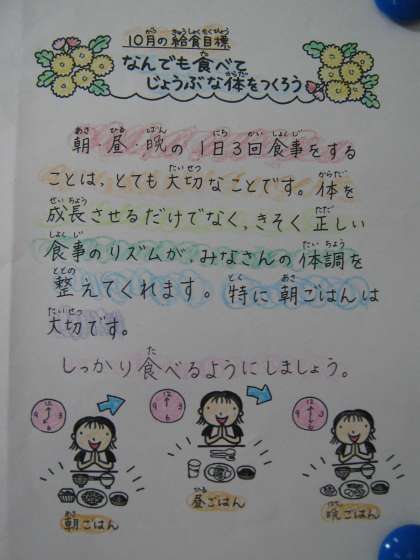 10月の給食目標
なんでも食べて
じょうぶな体をつくろう
朝・昼・晩の1日3回食事をする
ことは、とても大切なことです。体を
成長させるだけでなく、きそく正しい
食事のリズムが、みなさんの体調を
整えてくれます。特に朝ごはんは
大切です。
しっかり食べるようにしましょう。
朝ごはん
昼ごはん
晩ごはん